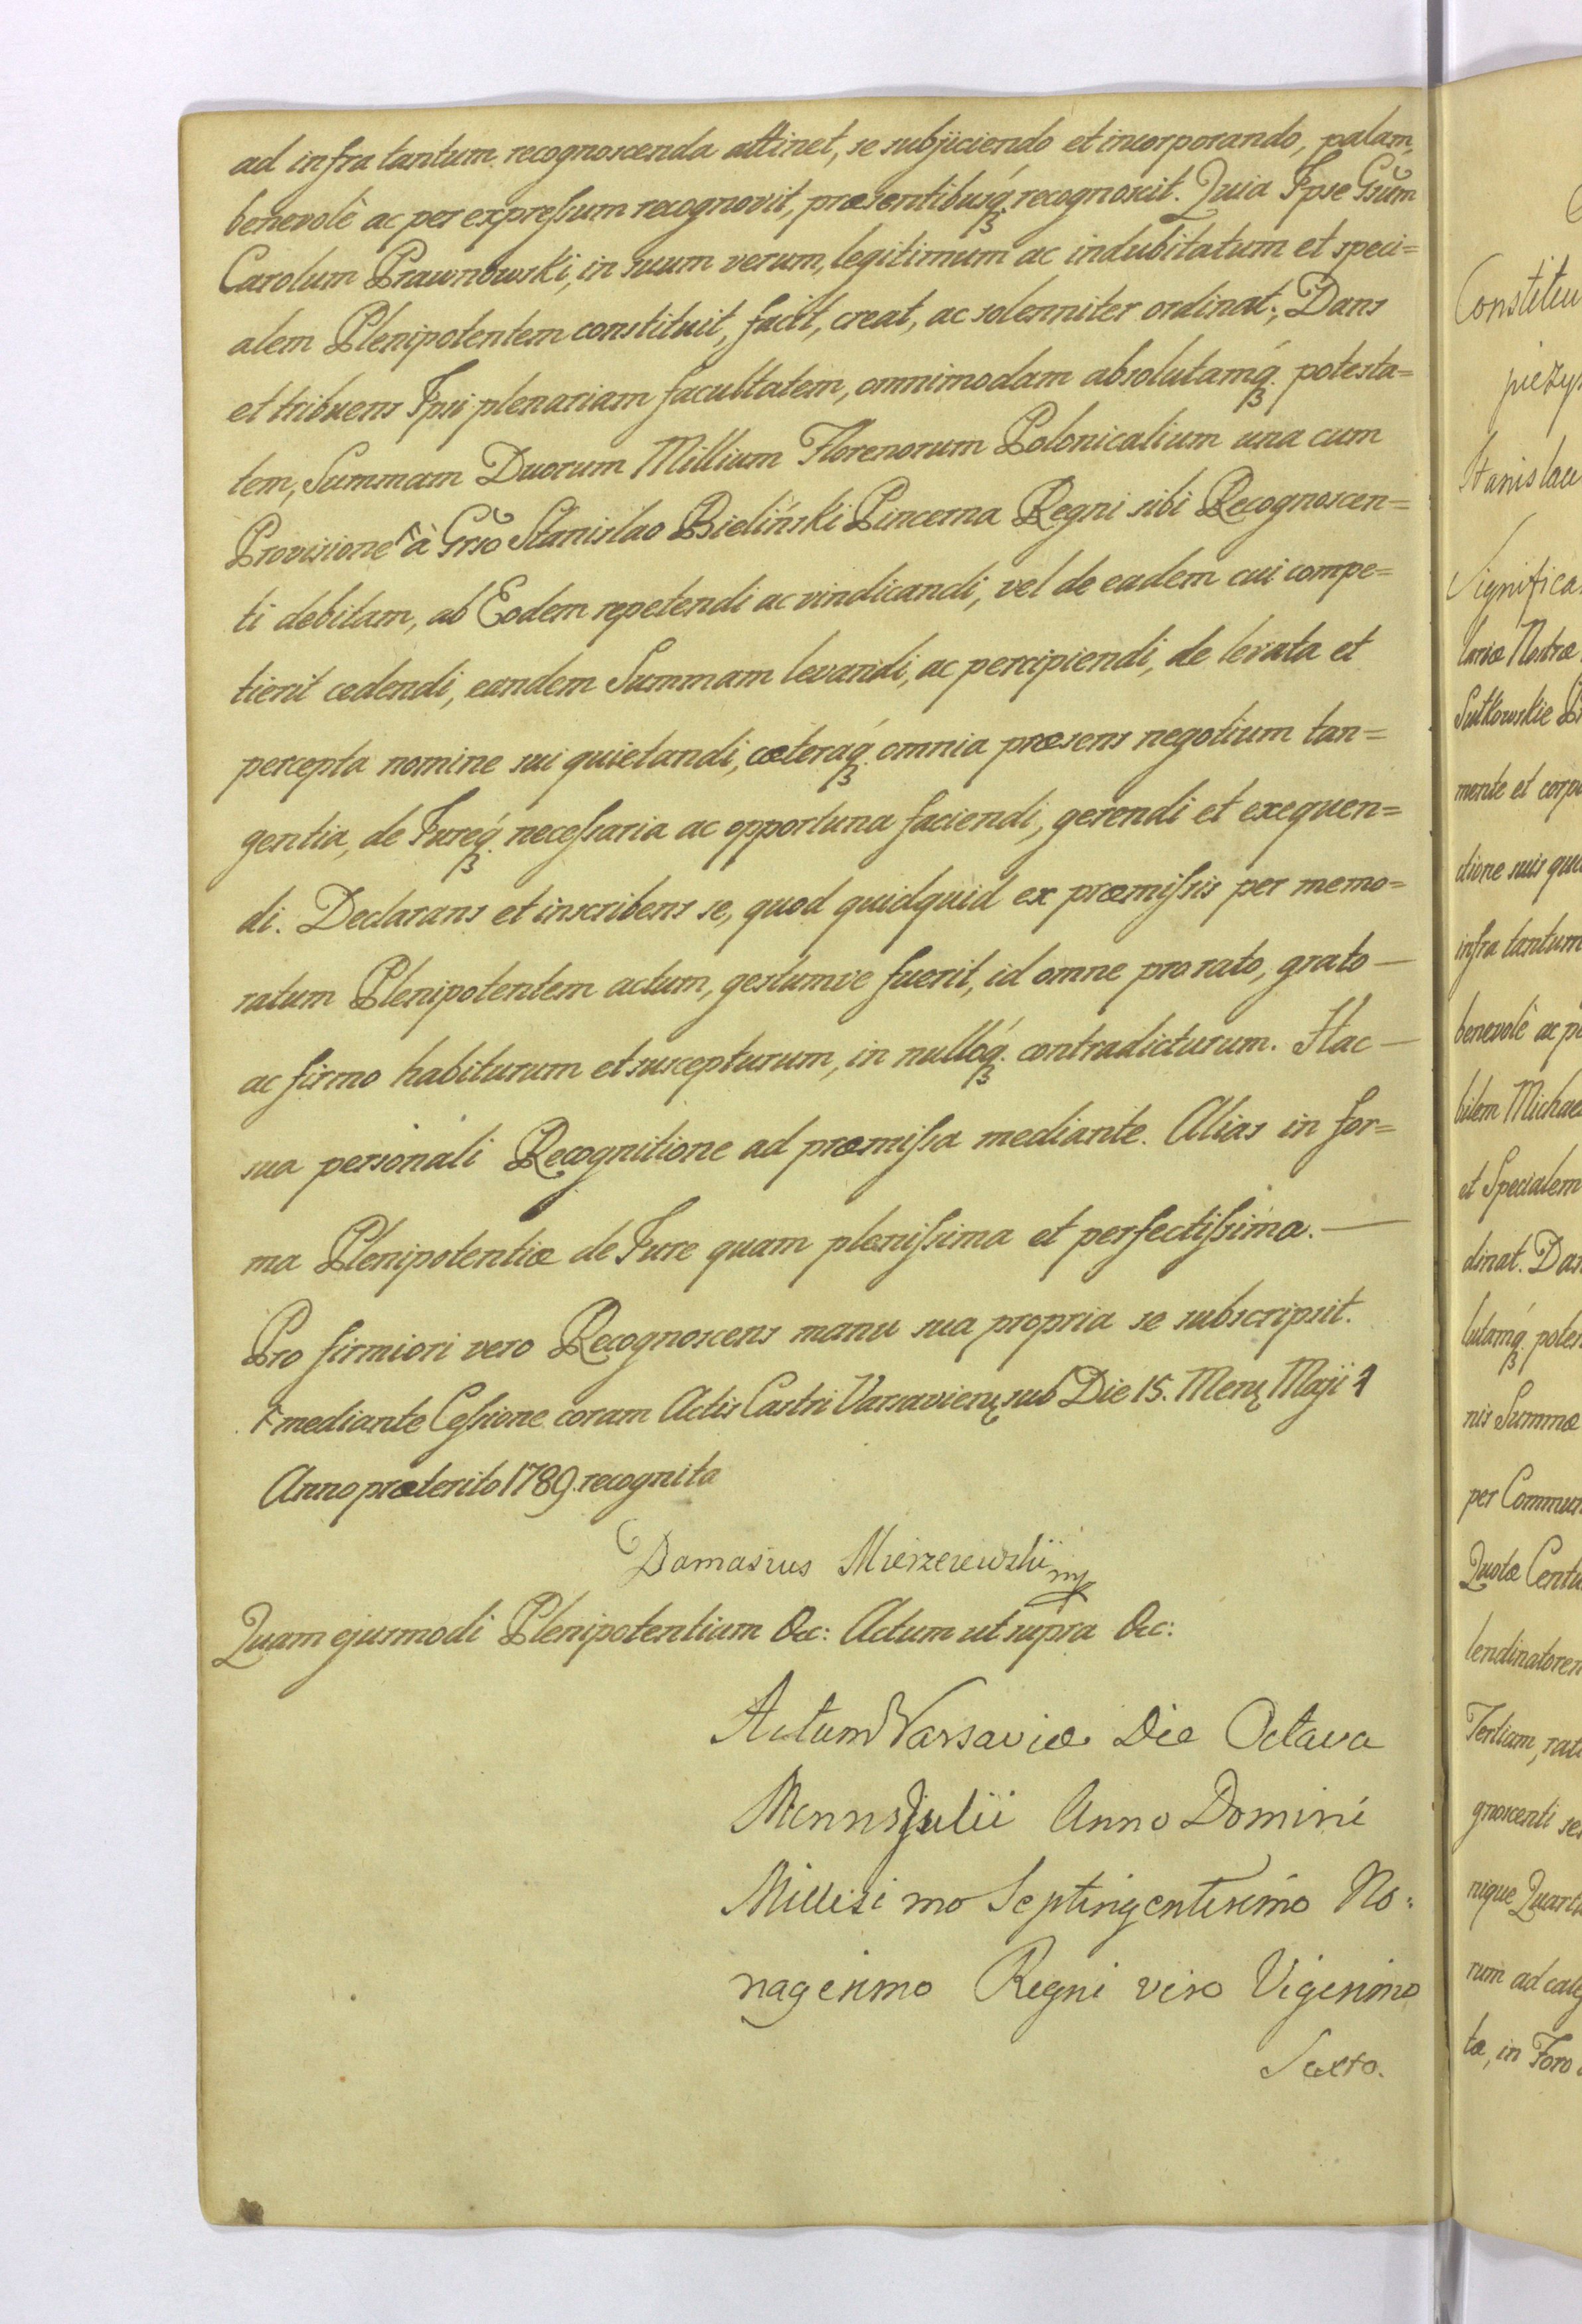 ad infra tantum recognoscenda attinet, se subjiciendo et incorporando, palam,
benevolè ac per expreſsum recognovit, præsentibusq́ꝫ recognoscit. Quia Ipse Gsūm
Carolum Prawnowski, in suum verum, legitimum ac indubitatum et speci=
alem Plenipotentem constituit, facit, creat, ac solenniter ordinat; Dans
et tribuens Ipsi plenariam facultatem, omnimodam absolutamq́ꝫ potesta=
tem, Summam Duorum Millium Florenorum Polonicalium una cum
Provisione à Grso Stanislao Bieliński Pincerna Regni sibi Recognoscen=
ti debitam, ab Eodem repetendi ac vindicandi, vel de eadem cui compe=
tierit cedendi, eandem Summam levandi, ac percipiendi, de levata et
percepta nomine sui quietandi, cæteraq́ꝫ omnia præsens negotium tan=
gentia, de Jureq́ꝫ neceſsaria ac opportuna faciendi, gerendi et exequen=
di. Declarans et inscribens se, quod quidquid ex præmiſsis per memo=
ratum Plenipotentem actum, gestumve fuerit, id omne pro rato, grato —
ac firmo habiturum et suscepturum, in nulloq́ꝫ contradicturum. Hac —
sua personali Recognitione ad præmiſsa mediante. Alias in for=
ma Plenipotentiæ de Jure quam pleniſsima et perfectiſsima. —
Pro firmiori vero Recognoscens manu sua propria se subscripsit.
mediante Ceſsione coram Actis Castri Varsavienꝫ sub Die 15. Menꝫ Maji
Anno præterito 1789. recognita
Damasius Mierzeiewski mp
Quam ejusmodi Plenipotentiam &c: Actum ut supra &c:
Actum Varsaviæ Die Octava
Mennsis Julii Anno Domini
Millesimo Septingentesimo No:
nagesimo Regni vero Vigesimo
Sexto.
Constitu
Stanislau
Significa
lariæ Nostræ
Sułkowskie
mente et corpo
ctione suis qua
infra tantum
benevolè ac pe
bilem Michae
et Specialem
dinat. Dan
lutamq́ꝫ potes
nis Summæ
per Commun
Quotæ Centu
lendinatorem
Tertiam, rat
gnoscenti se
nique Quart
rum ad calc
tæ, in Foro